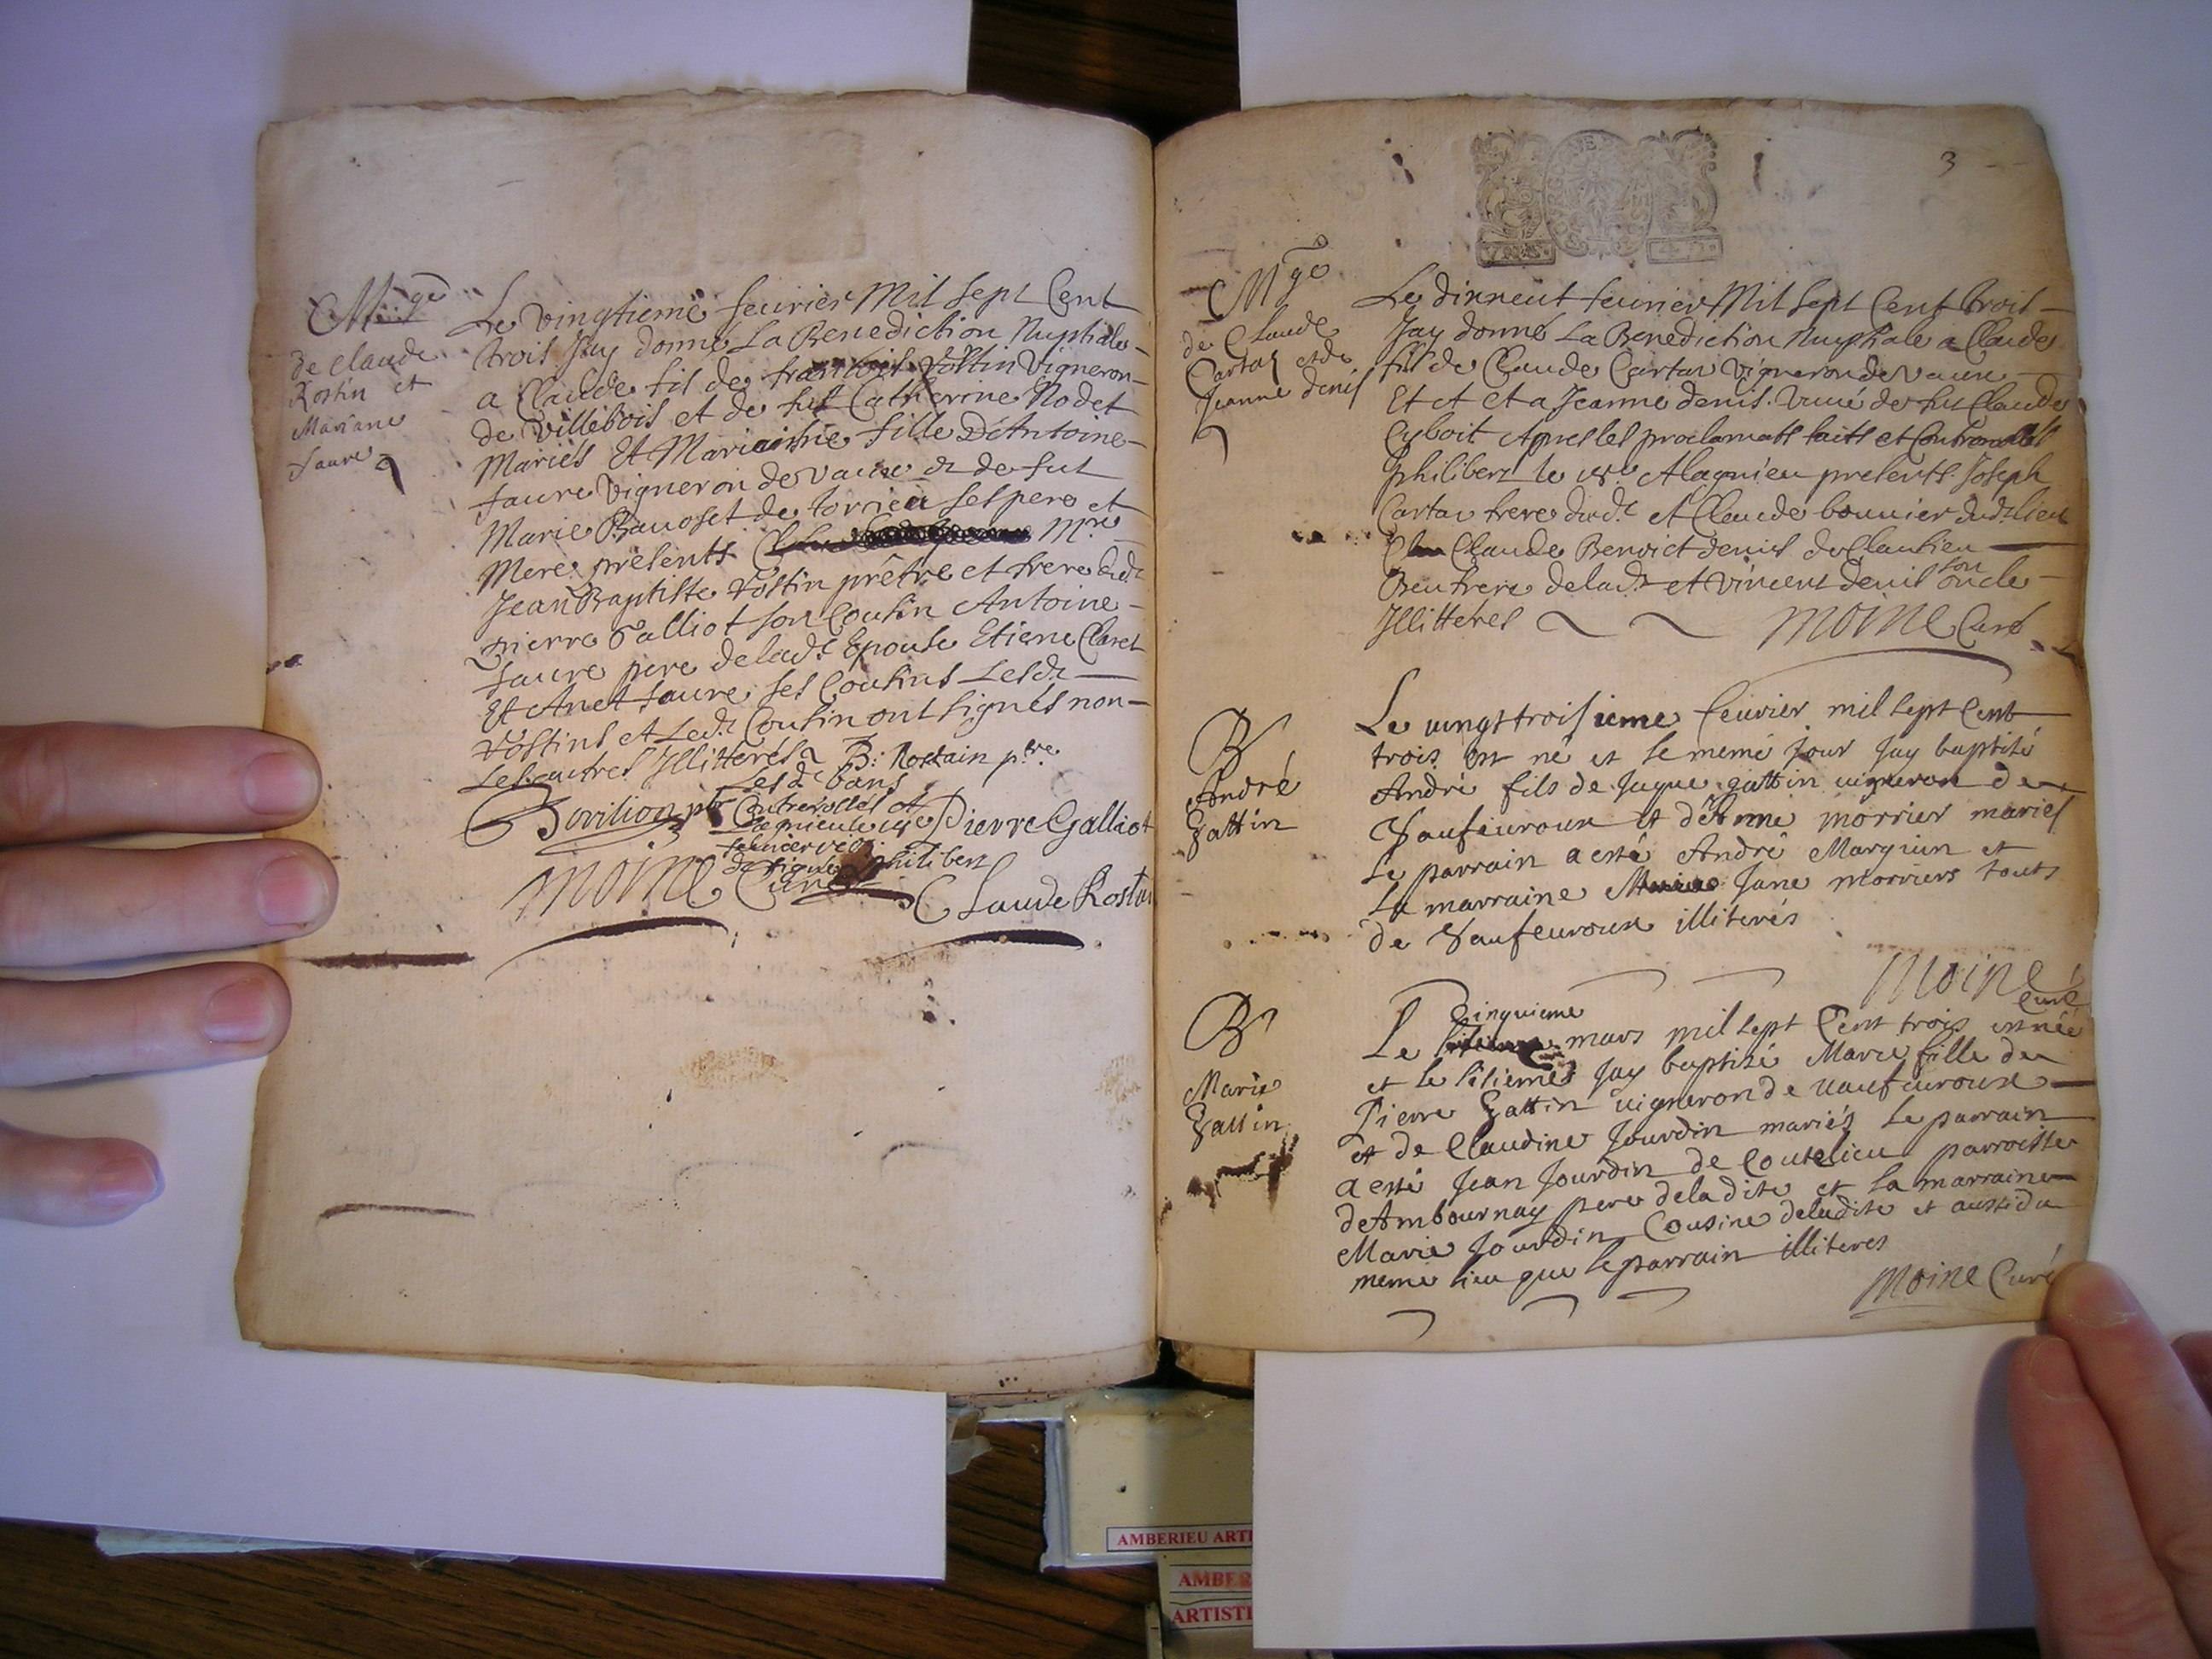 Mge
de Claude
Rostin et
Mariane
faure
Le vingtieme feurier Mil sept Cent
trois Jay donné La Benediction Nuptiale
a Claude fil de francois Rostin Vigneron
de Villebois et de fut Catherine Nodet
Mariés Et Marianne fille D'Antoine
faure Vigneron de vaux et de fut
Marie Ravoset de torcieu ses pere et
Mere presents Mre
Jean Baptiste Rostin prêtre et frere dudt
pierre Galliot son Cousin Antoine
faure pere deladt Epouse Etiene Claret
Et Anet faure ses Cousins Lesdt
Rostins et Ledt Cousin ont signés non
Les autres Illitteres B: Rostain ptre
Les dt bans
Controllés et
Lagnieu le
feurier
de signé philibert
Pierre Galliot
Moine Curé
Claude Rostin
3
Mge
de Claude
Cartaz et de
Jeanne denis
Le dixneuf feurier Mil sept Cent trois
Jay donné La Benediction Nuptiale a Claude
fil de Claude Cartaz Vigneron de vaux
Et et a Jeanne denis veuve de fut Claude
Cyboit Apres les proclamats faits et Controullés
philibert le 18e A lagnieu presents Joseph
Cartaz frere dudt et Claude bouvier dudt lieu
Claude Benoict denis de Clautieu
Beufrere deladt et vincent denis son oncle
Jllitteres Moine Curé
B
André
Gattin
Le vingt troisieme feuvier mil sept Cent
trois est né et le meme jour jay baptisé
André fils de Jaque gattin vigneron de
Vaufeuroux et d'Anne morrier mariés
Le parrain a esté André Marguin et
La marraine Jane morriers touts
de Vaufeuroux illiterés
Moine
Curé
B
Marie
Gattin
Cinquieme
Le mars mil sept Cent trois est née
et le sisieme jay baptisé Marie fille de
Pierre Gattin vigneron de vaufeuroux
et de Claudine Jourdin mariés Le parrain
a esté Jean Jourdin de Coutelieu parroisse
d'Ambournay pere deladite et la marraine
Marie Jourdin Cousine deladite et aussi du
meme lieu que le parrain illiteres
Moine Curé
AMBERIEU ARTI
AMBER
ARTISTI